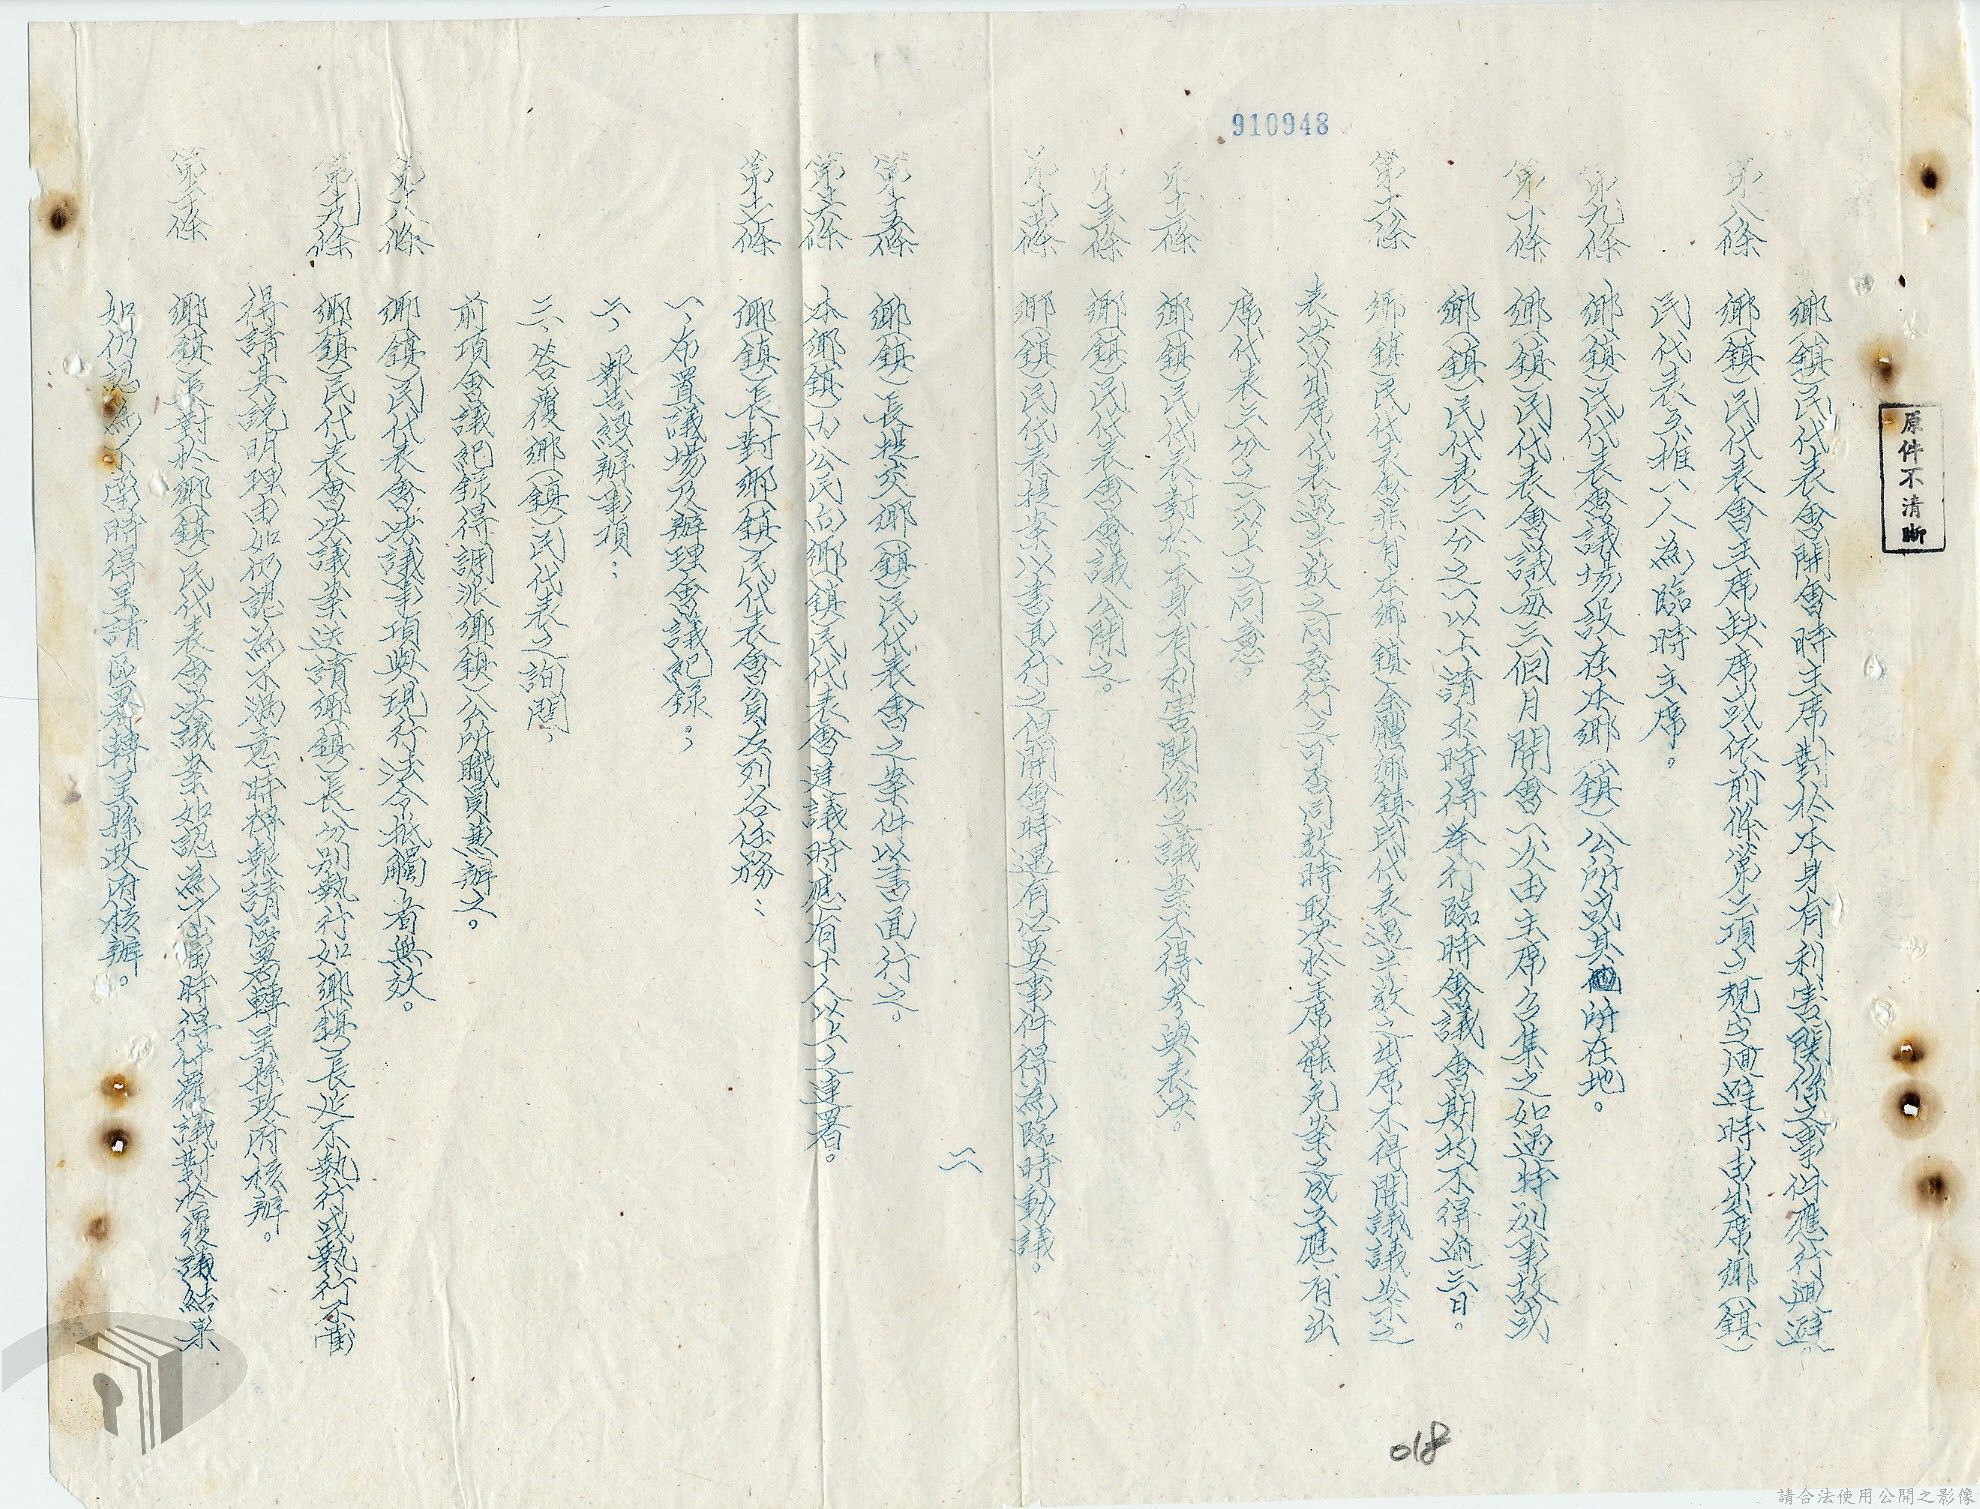 910948
原件不清晰
鄉(鎮)民代表會開會時主席對於本身有利害關係之事件應行迴避。
第八條 鄉(鎮)民代表會主席缺席或依前條第二項之規定迴避時由出席鄉(鎮)
民代表互推一人為臨時主席。
第九條 鄉(鎮)民代表會議場設在本鄉(鎮)公所或其他所在地。
第十條 鄉(鎮)民代表會議每三個月開會一次由主席召集之如遇特別事故或
鄉(鎮)民代表三分之一以上請求時得舉行臨時會議會期均不得逾三日。
第十一條 鄉(鎮)民代表會非有本鄉(鎮)全體鄉(鎮)民代表過半數之出席不得開議議案之
表決以出席代表過半數之同意行之可否同數時取決於主席罷免案之成立應有出
席代表三分之二以上之同意。
第十二條 鄉(鎮)民代表對於本身有利害關係之議案不得參與表決。
第十三條 鄉(鎮)民代表會會議公開之。
第十四條 鄉(鎮)民代表提案以書面行之但開會時遇有必要事件得為臨時動議。
二
第十五條 鄉(鎮)長提交鄉(鎮)民代表會之案件以書面行之。
第十六條 本鄉(鎮)內公民向鄉(鎮)民代表會建議時應有十人以上之連署。
第十七條 鄉(鎮)長對鄉(鎮)民代表會負左列各任務:
一、布置議場及辦理會議紀錄。
二、報告經辦事項:
三、答覆鄉(鎮)民代表之詢問,
前項會議紀錄得調派鄉(鎮)公所職員兼辦之。
第十八條 鄉(鎮)民代表會決議事項與現行法令抵觸者無效。
第十九條 鄉(鎮)民代表會決議案送請鄉(鎮)長分別執行如鄉(鎮)長延不執行或執行不當
得請其說明理由如仍認為不滿意時得報請區署轉呈縣政府核辦。
第二十條 鄉(鎮)長對於鄉(鎮)民代表會決議案如認為不當時得付覆議對於覆議結果
如仍認為不當時得呈請區署轉呈縣政府核辦。
018
請合法使用公開之影像